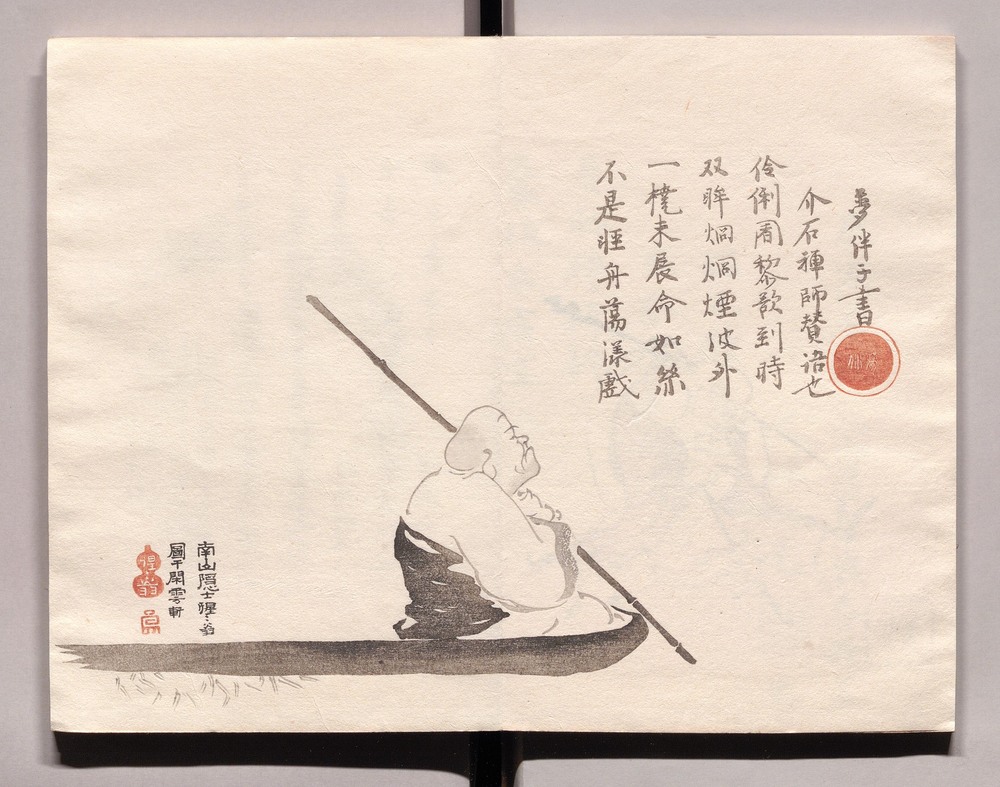 不是舟蕩漾戲
一橈未展命如絲
双眸烱烱煙波外
伶俐闍黎歌到時
介石禅師賛语也
夢伴子書
南山隠士猩〻翁
圖于閑雲軒
猩翁